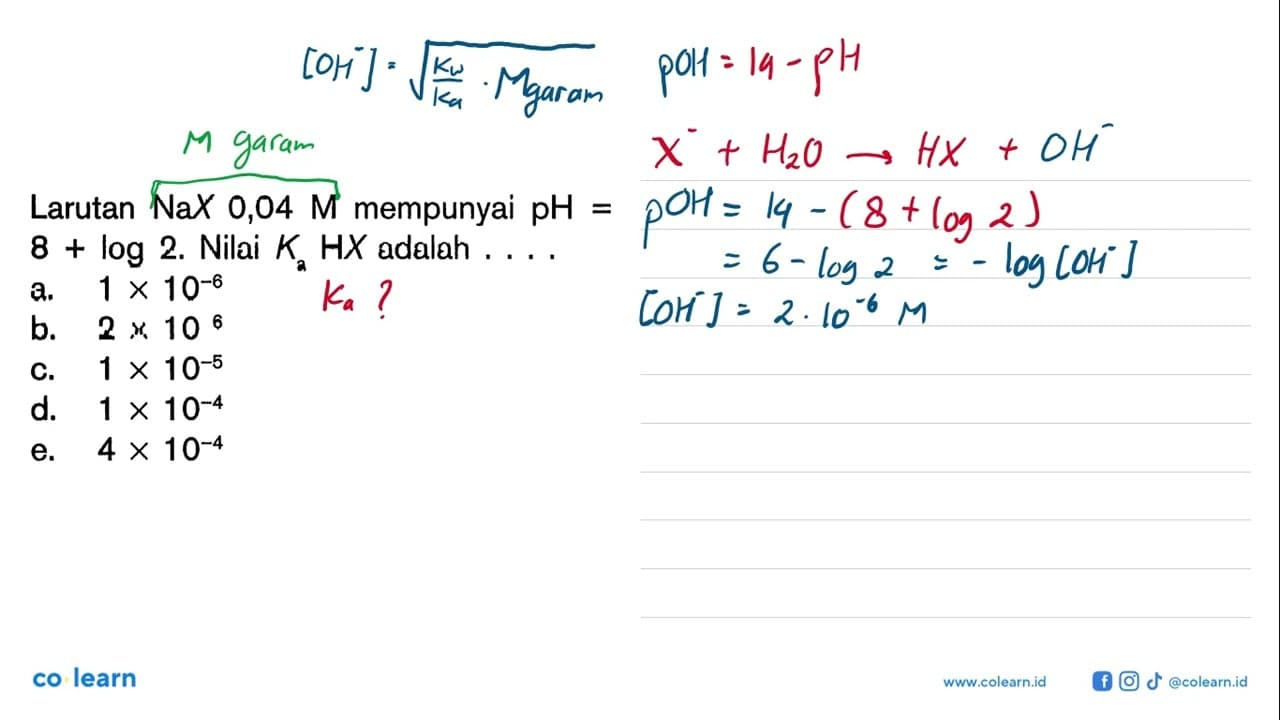 [OH⁻] = √(Kw/Ka · Mgaram)
pOH = 14 - pH
M garam
X⁻ + H₂O → HX + OH⁻
Larutan NaX 0,04 M mempunyai pH =
8 + log 2. Nilai Kₐ HX adalah . . . .
a. 1 × 10⁻⁶
b. 2 × 10 ⁶
c. 1 × 10⁻⁵
d. 1 × 10⁻⁴
e. 4 × 10⁻⁴
Ka ?
pOH = 14 - (8 + log 2)
= 6 - log 2 = - log [OH⁻]
[OH⁻] = 2 . 10⁻⁶ M
co learn
www.colearn.id
@colearn.id